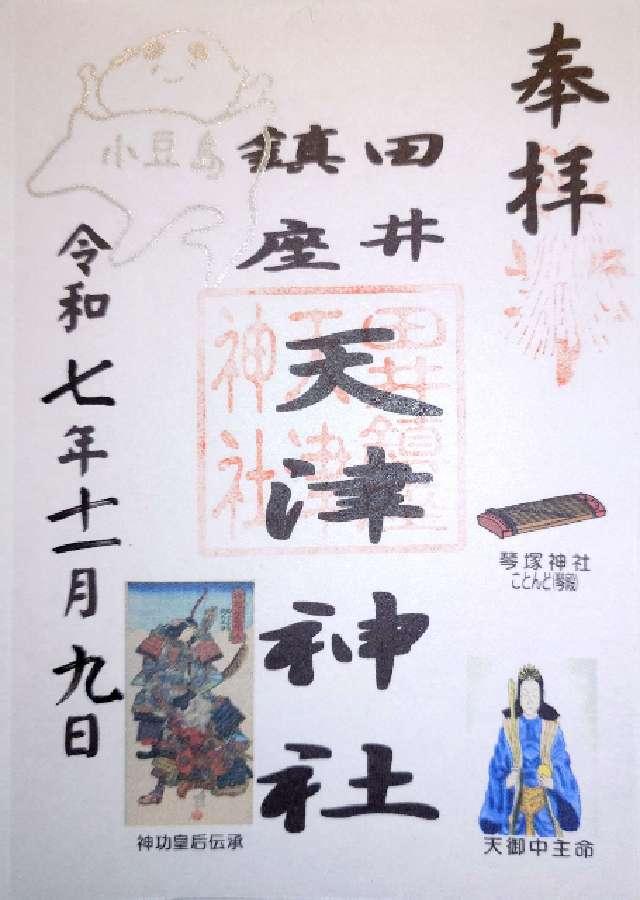 奉拝
田井
鎮座
天津神社
田井鎮座
天津
神社
小豆島
令和七年十一月九日
琴塚神社
ことんど(琴殿)
天御中主命
神功皇后伝承